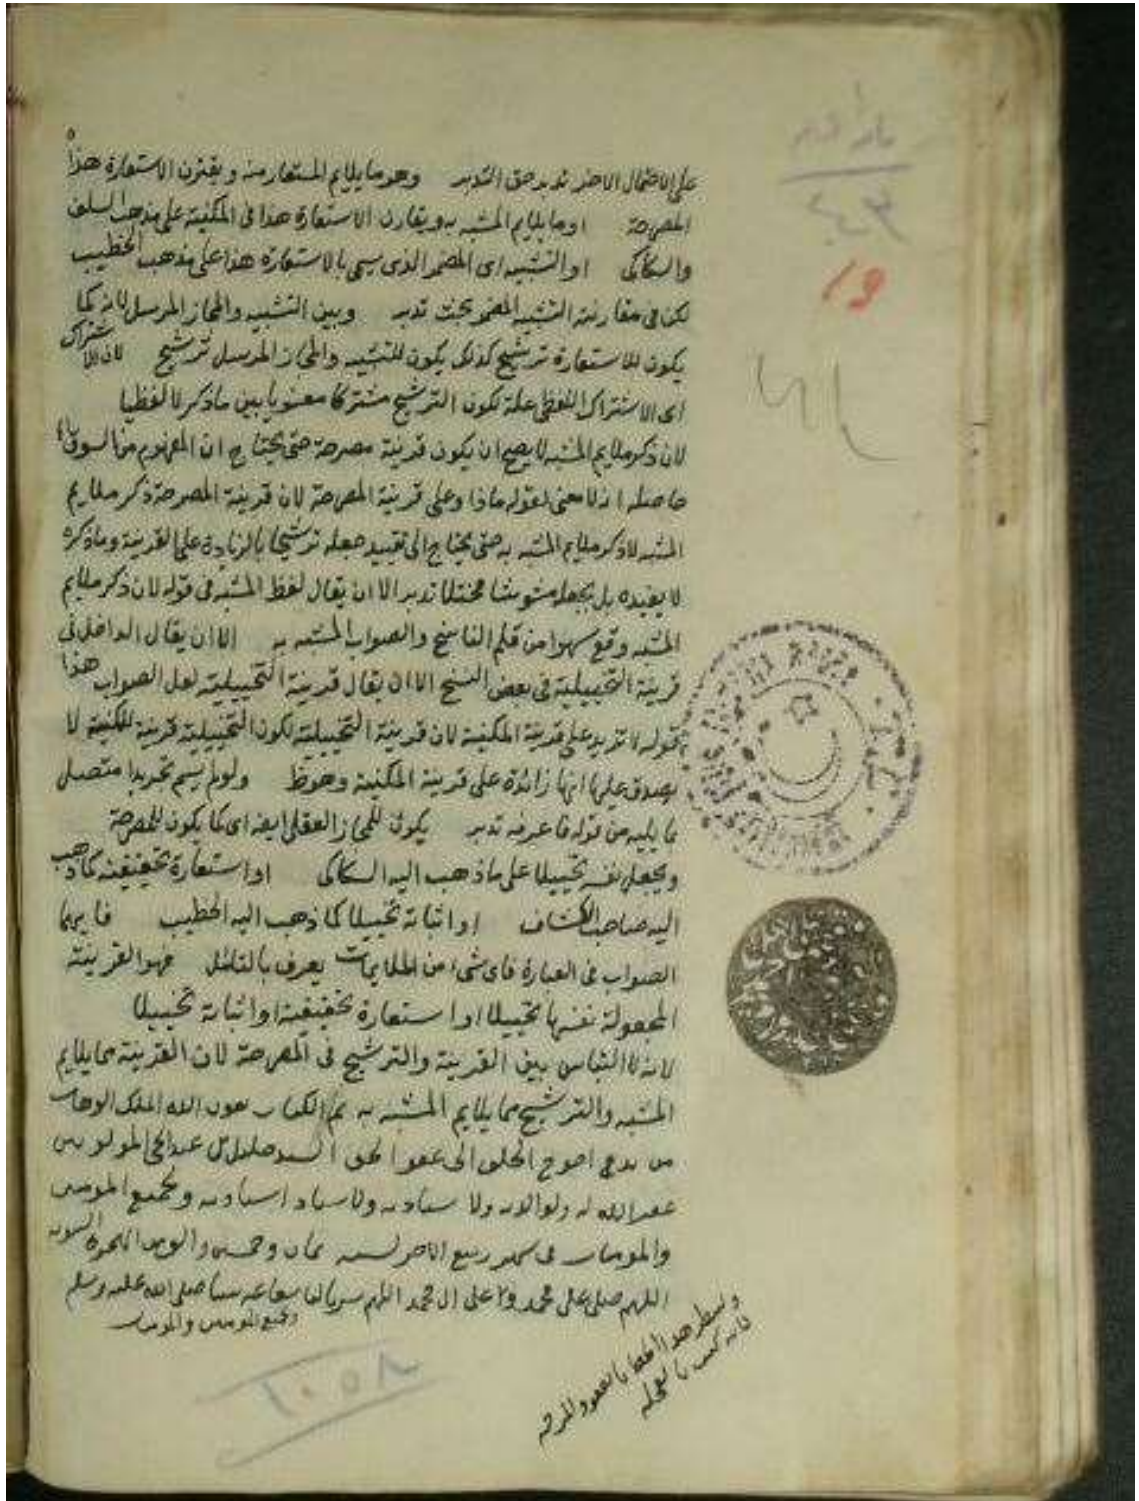 على الاحتمال الاخر تدبر حق التدبر وهو ما يلايم المستعار منه ويقترن الاستعارة هذا
المصرحة او ما يلايم المشبه به ويقارن الاستعارة هذا فى المكنية على مذهب السلف
والسكاكى او التشبيه اى المضمر الذى سمى بالاستعارة هذا على مذهب الخطيب
لكن فى مقارنته التشبيه المضمر بحث تدبر وبين التشبيه والمجاز المرسل لانه كما
يكون للاستعارة ترشيح كذلك يكون للتشبيه والمجاز المرسل ترشيح لان الاشتراك
اى الاشتراك اللفظى علة لكون الترشيح مشتركا معنويا بين ما ذكر لا لفظيا
لان ذكر ملايم المشبه لا يصح ان يكون قرينة مصرحة حتى يحتاج ان المفهوم من السوق
حاصله انه لا معنى لقوله ماذا وعلى قرينة المصرحة لان قرينة المصرحة ذكر ملايم
المشبه لا ذكر ملايم المشبه به حتى يحتاج الى تقييد جعله ترشيحا بالزيادة على القرينة وما ذكره
لا يفيده بل يجعله مشوشا مختلا تدبر الا ان يقال لفظ المشبه فى قوله لان ذكر ملايم
المشبه وقع سهوا من قلم الناسخ والصواب المشبه به الا ان يقال الداخل فى
قرينة التخييلية فى بعض النسخ الا ان يقال قرينة التخييلية لعل الصواب هذا
بقوله لا تزيد على قرينة المكنية لان قرينة التخييلية لكون التخييلية قرينة للمكنية لا
يصدق عليها انها زائدة على قرينة المكنية وهو ظ ولو لم يسم تجريدا متصل
بما يليه من قوله فاعرفه تدبر يكون للمجاز العقلى ايضا اى كما يكون للمصرحة
ويجعل نفسه تخييلا على ما ذهب اليه السكاكى او استعارة تحقيقية كما ذهب
اليه صاحب الكشاف او اثباته تخييلا كما ذهب اليه الخطيب فايهما
الصواب فى العبارة فاى شىء من الملايمات يعرف بالتامل فهو القرينة
المجعولة نفسها تخييلا او استعارة تحقيقية او اثباته تخييلا
لانه لا التباس بين القرينة والترشيح فى المصرحة لان القرينة مما يلايم
المشبه والترشيح مما يلايم المشبه به تم الكتاب بعون الله الملك الوهاب
من يدى احوج الخلق الى عفو الحق السيد خليل بن عبد الحى
غفر الله له ولوالديه ولاستاديه ولاستاد استاديه ولجميع المومنين
والمومنات فى شهر ربيع الاخر لسنة ثمان وخمسين والف من الهجرة النبوية
اللهم صلى على محمد وعلى ال محمد اللهم شفاعة نبينا صلى الله عليه وسلم
ولجميع المومنين والمومنات
هذا الخط بالعفو
فانه كتب بالعجلة
١٠٥٨
19